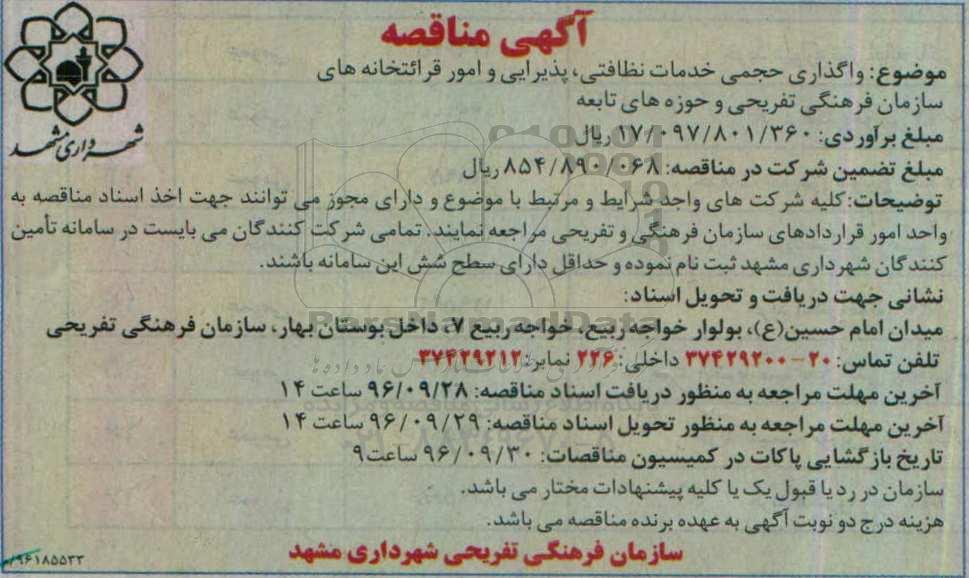 آگهی مناقصه
شهرداری مشهد
موضوع: واگذاری حجمی خدمات نظافتی، پذیرایی و امور قرائتخانه های
سازمان فرهنگی تفریحی و حوزه های تابعه
مبلغ برآوردی: ۱۷/۰۹۷/۸۰۱/۳۶۰ ریال
مبلغ تضمین شرکت در مناقصه: ۸۵۴/۸۹۰/۰۶۸ ریال
توضیحات: کلیه شرکت های واجد شرایط و مرتبط با موضوع و دارای مجوز می توانند جهت اخذ اسناد مناقصه به
واحد امور قراردادهای سازمان فرهنگی و تفریحی مراجعه نمایند. تمامی شرکت کنندگان می بایست در سامانه تأمین
کنندگان شهرداری مشهد ثبت نام نموده و حداقل دارای سطح شش این سامانه باشند.
نشانی جهت دریافت و تحویل اسناد:
میدان امام حسین(ع)، بولوار خواجه ربیع، خواجه ربیع ۷، داخل بوستان بهار، سازمان فرهنگی تفریحی
تلفن تماس: ۲۰-۳۷۴۲۹۲۰۰ داخلی: ۲۲۶ نمابر: ۳۷۴۲۹۲۱۲
آخرین مهلت مراجعه به منظور دریافت اسناد مناقصه: ۹۶/۰۹/۲۸ ساعت ۱۴
آخرین مهلت مراجعه به منظور تحویل اسناد مناقصه: ۹۶/۰۹/۲۹ ساعت ۱۴
تاریخ بازگشایی پاکات در کمیسیون مناقصات: ۹۶/۰۹/۳۰ ساعت ۹
سازمان در رد یا قبول یک یا کلیه پیشنهادات مختار می باشد.
هزینه درج دو نوبت آگهی به عهده برنده مناقصه می باشد.
سازمان فرهنگی تفریحی شهرداری مشهد
۹۶۱۸۵۵۳۳/م
ParsNamadData